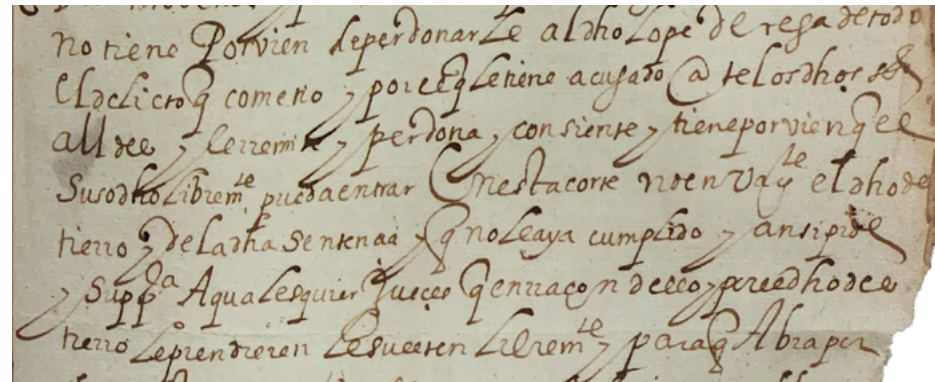 no tiene Por vien de perdonar Le al dho Lope de vega de todo
El delicto q cometio y por el q le tiene acusado Ante los dhos sres
all des y le rremite y perdona y consiente y tiene por vien q el
Susodho Librem.te pueda entrar En esta corte no en va q.te el dho des
tierro y de la dha Sentencia y q no Le aya cumplido y ansi pide
y supp.ca A quales quier Jueces q en rraçon de ello y por el dho des
tierro Le prendieren Le suelten Librem.te y para q Abra por